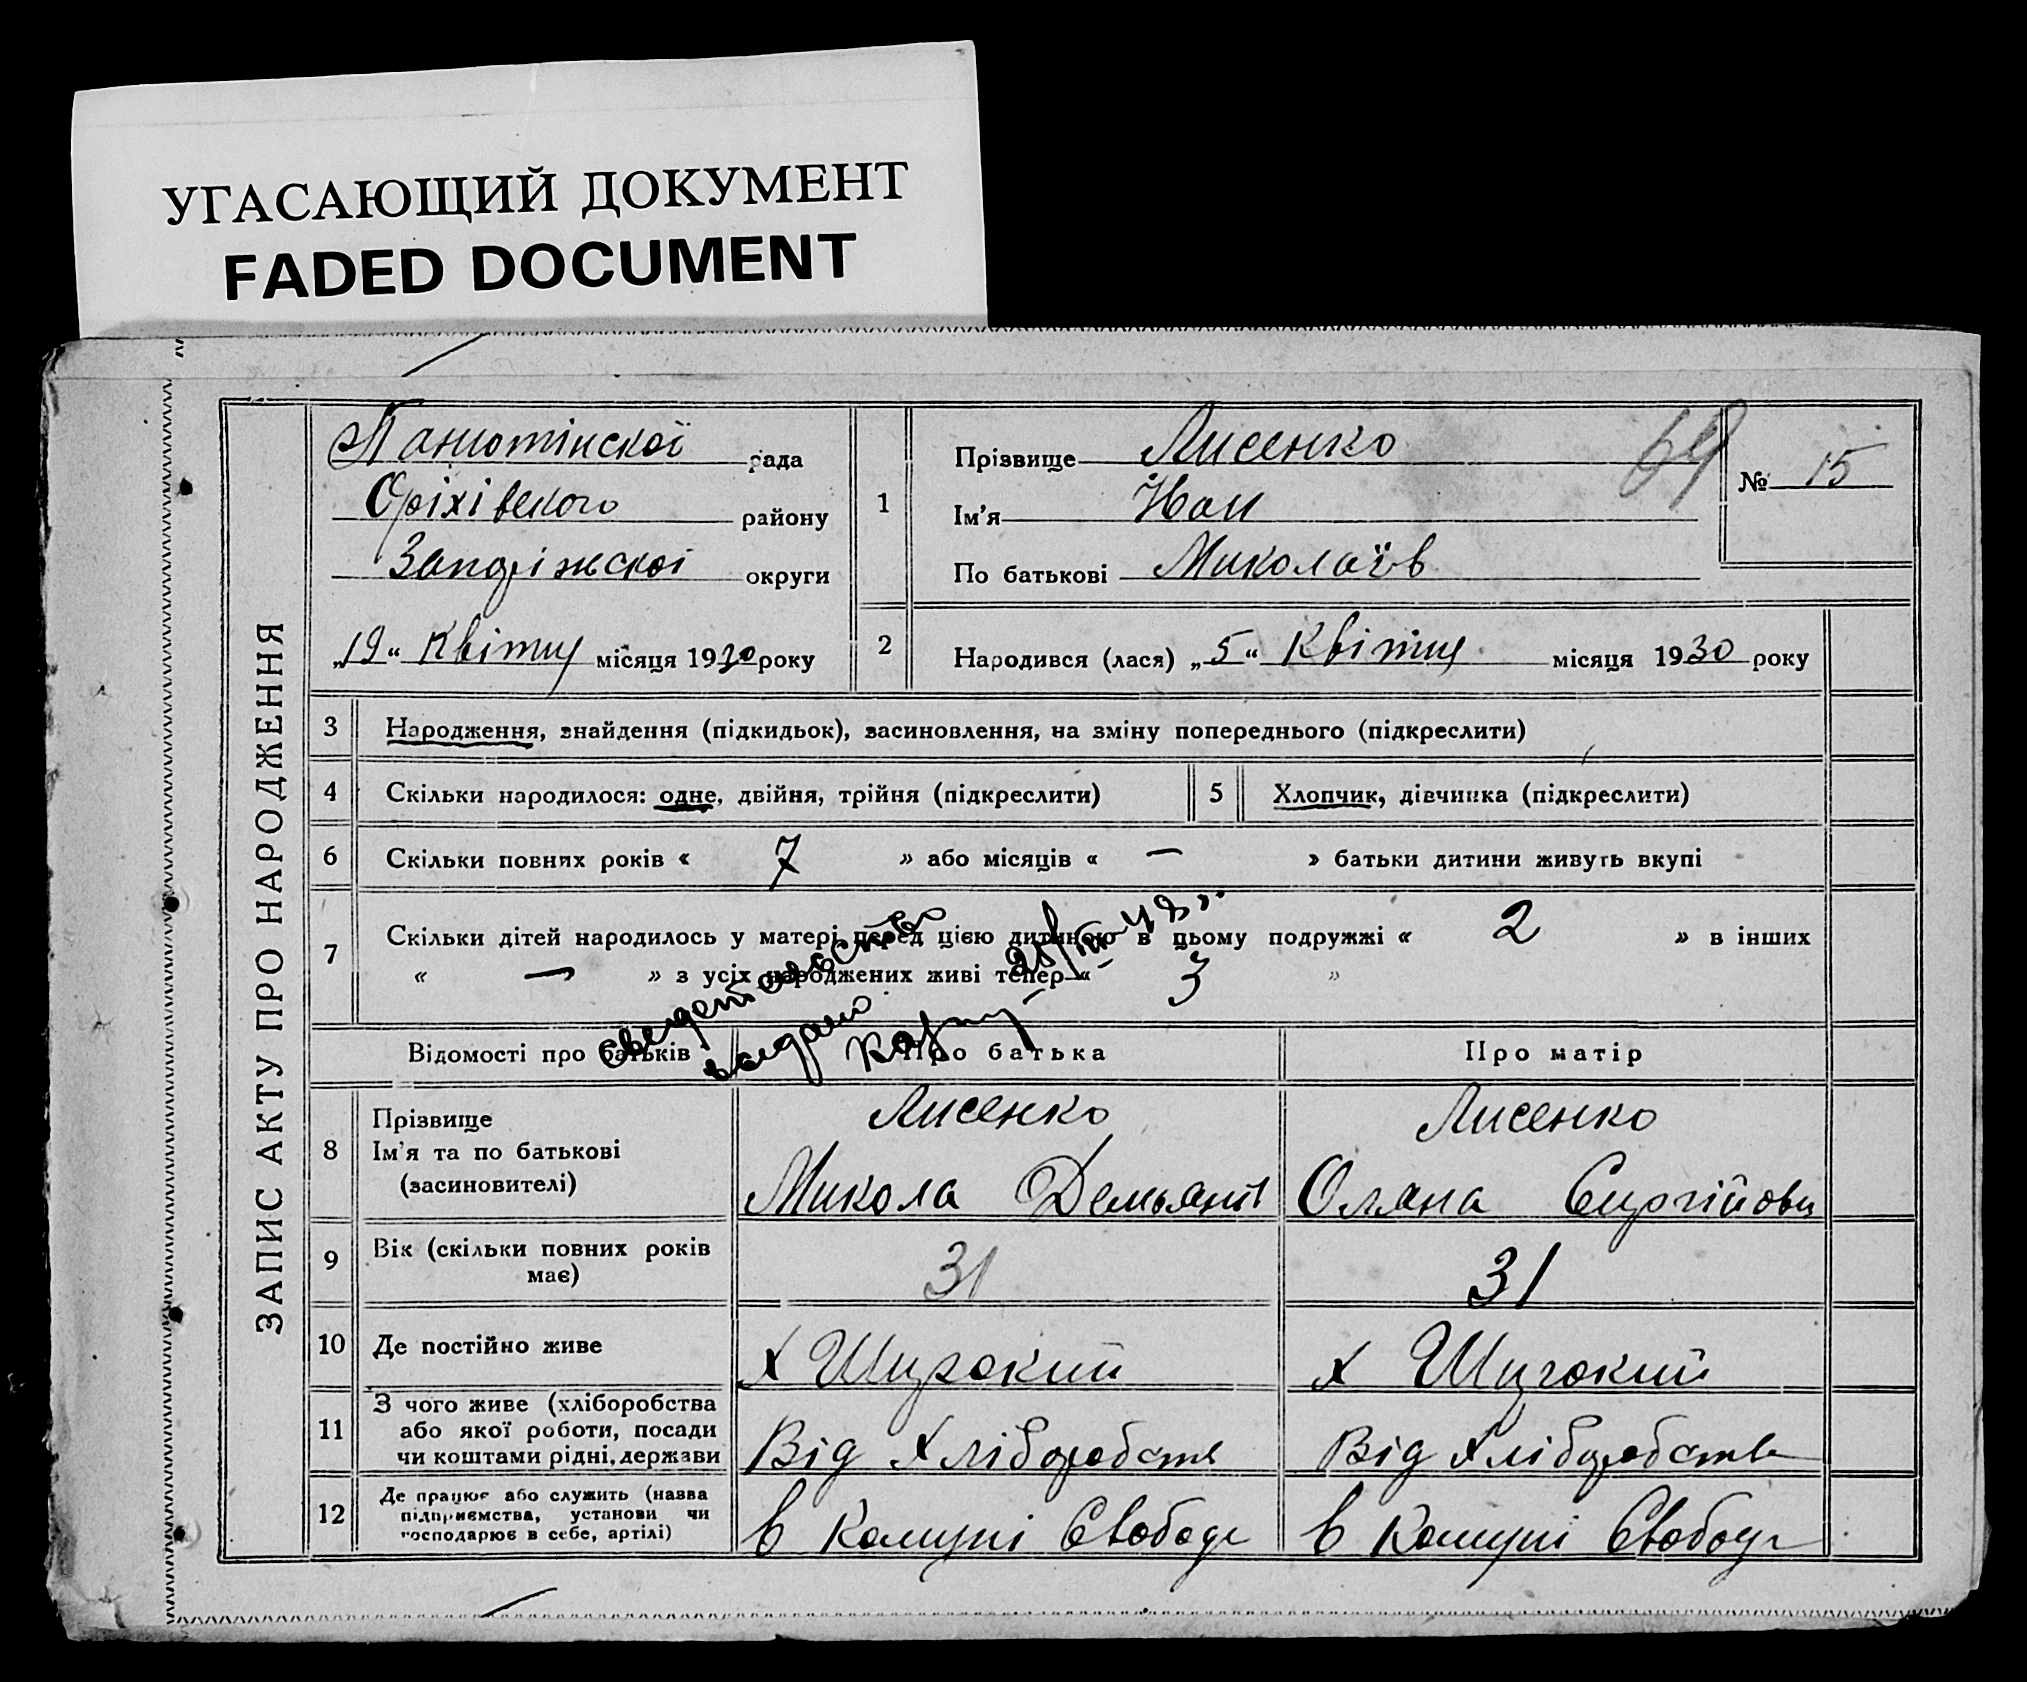 УГАСАЮЩИЙ ДОКУМЕНТ
FADED DOCUMENT
ЗАПИС АКТУ ПРО НАРОДЖЕННЯ
Панютінскої рада
Оріхівского району
Запоріжскої округи
„19“ Квітня місяця 1930 року
1
Прізвище Лисенко
Ім'я Йван
По батькові Миколаїв
69
№ 15
2 Народився (лася) „5“ Квітня місяця 1930 року
3 Народження, знайдення (підкидьок), засиновлення, на зміну попереднього (підкреслити)
4 Скільки народилося: одне, двійня, трійня (підкреслити)
5 Хлопчик, дівчинка (підкреслити)
6 Скільки повних років « 7 » або місяців « — » батьки дитини живуть вкупі
7 Скільки дітей народилось у матері перед цією дитиною в цьому подружжі « 2 » в інших
« — » з усіх народжених живі тепер « 3 »
свидетельство
видано
Відомості про батьків Про батька Про матір
8 Прізвище
Ім'я та по батькові
(засиновителі)
Лисенко
Микола Демьянів
Лисенко
Оляна Сиргійовн
9 Вік (скільки повних років
має)
31
31
10 Де постійно живе
х Широкий
х Широкий
11 З чого живе (хліборобства
або якої роботи, посади
чи коштами рідні, держави
Від Хліборобств
Від Хліборобства
12 Де працює або служить (назва
підприємства, установи чи
господарює в себе, артілі)
в Комуні Свобода
в Комуні Свобода